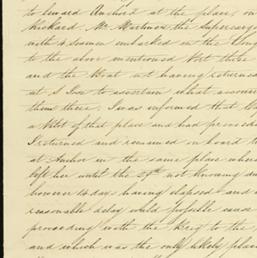 to leward Anchored at the place on
Rickard Mr Martinos the Supercargo
with 4 Seamen embarked in the Long
to the above mentioned Port there
and the Boat not having returned
at S Sea to ascertain what
them there. I was informed that
a Pilot of that place and had proceeded
I returned and remained on board
at Anchor in the same place where
left her until the 29th not knowing
however 10 days having elapsed and
reasonable delay could possible
proceeding with the Brig to the
and which was the only likely place